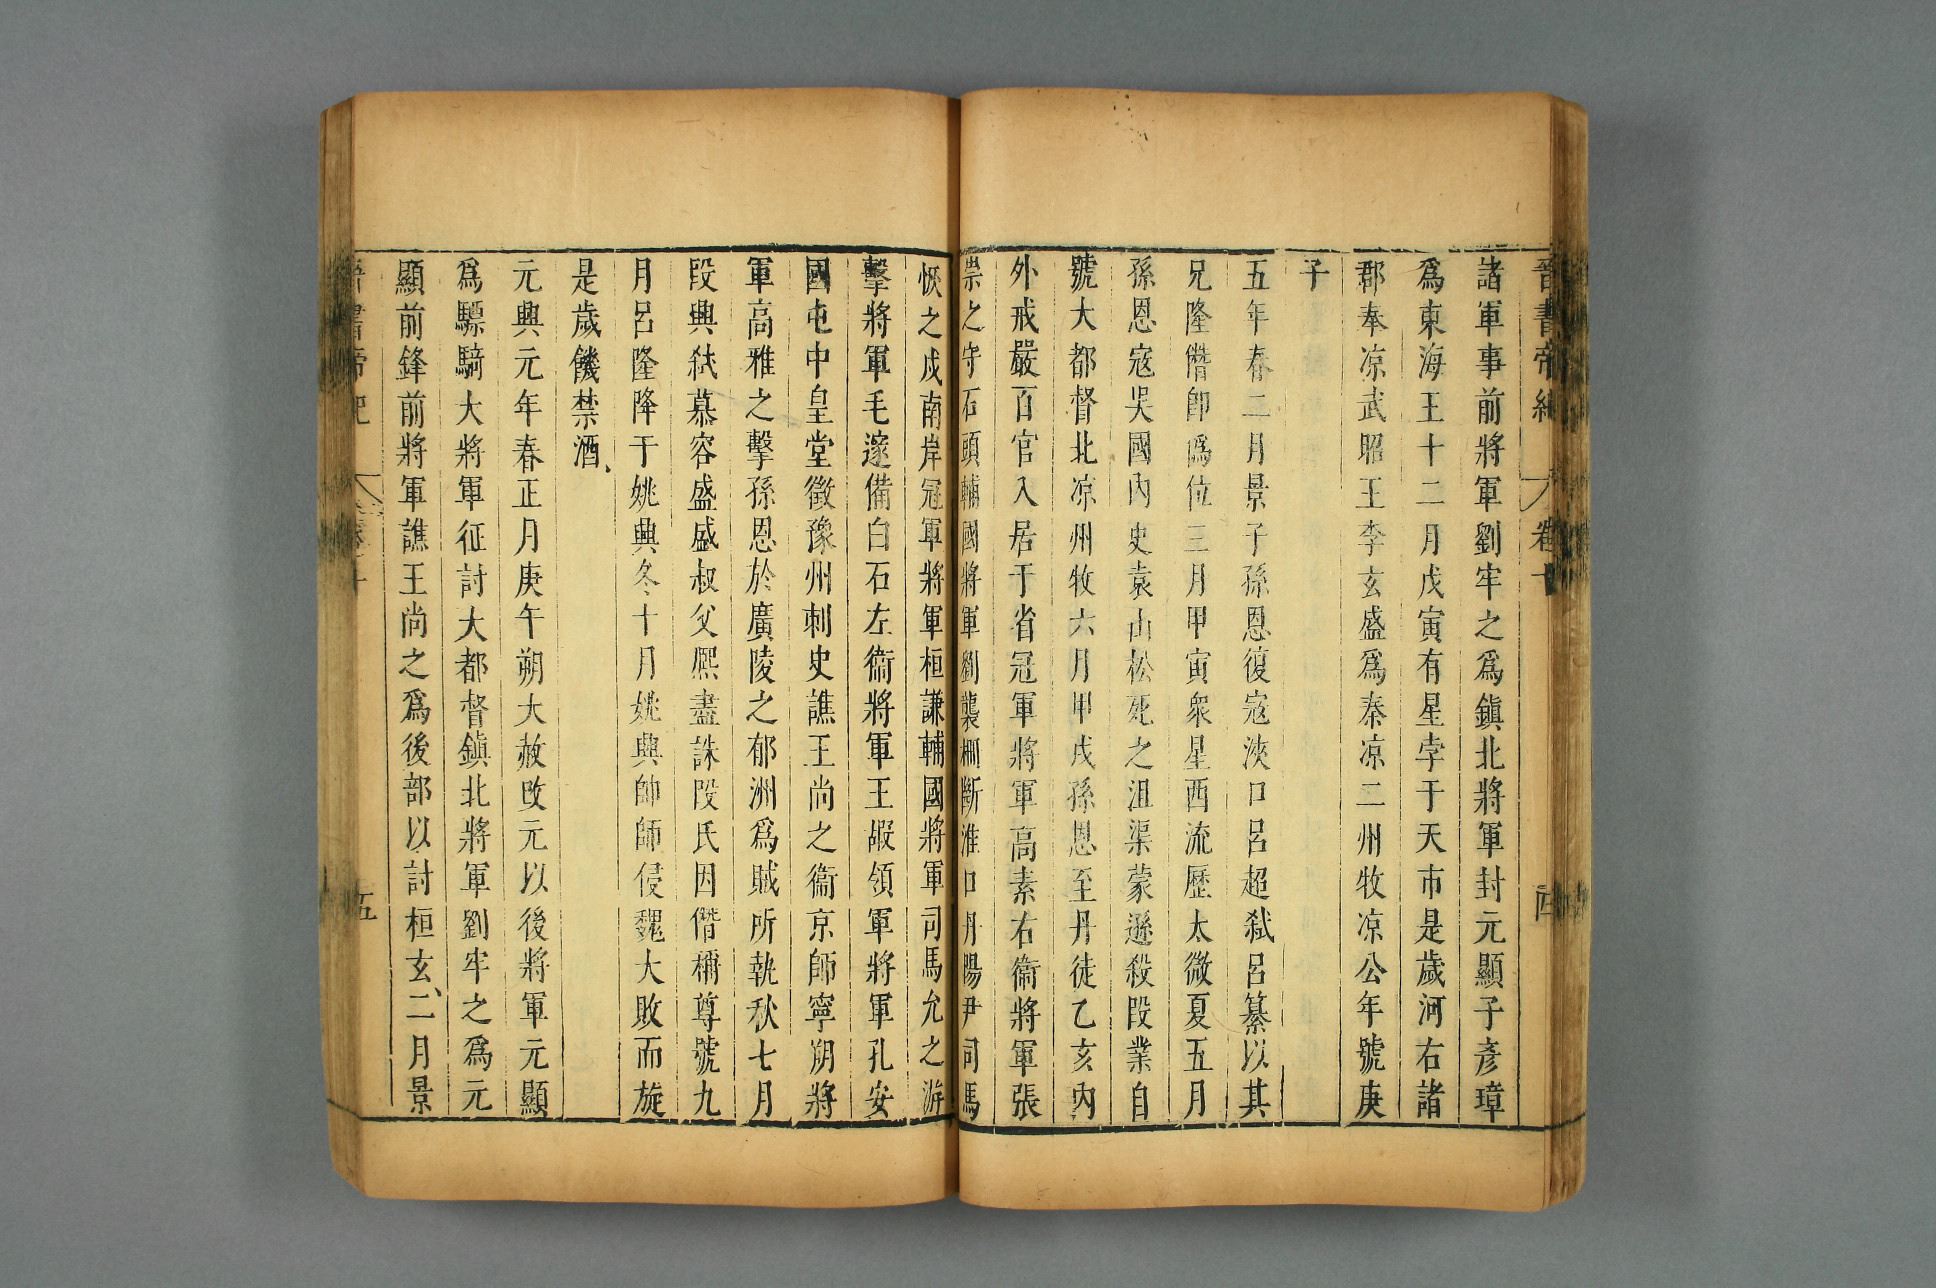 晉書帝紀 卷十 四
諸軍事前將軍劉牢之爲鎮北將軍封元顯子彥璋
爲東海王十二月戊寅有星孛于天市是歲河右諸
郡奉凉武昭王李玄盛爲秦凉二州牧凉公年號庚
子
五年春二月景子孫恩復寇浹口呂超弒呂纂以其
兄隆僭卽僞位三月甲寅衆星西流歷太微夏五月
孫恩寇吳國內史袁山松死之沮渠蒙遜殺段業自
號大都督北凉州牧六月甲戌孫恩至丹徒乙亥內
外戒嚴百官入居于省冠軍將軍高素右衞將軍張
崇之守石頭輔國將軍劉襲柵斷淮口丹陽尹司馬
恢之戍南岸冠軍將軍桓謙輔國將軍司馬允之游
擊將軍毛邃備白石左衞將軍王嘏領軍將軍孔安
國屯中皇堂徵豫州刺史譙王尚之衞京師寧朔將
軍高雅之擊孫恩於廣陵之郁洲爲賊所執秋七月
段興弒慕容盛盛叔父熙盡誅段氏因僭稱尊號九
月呂隆降于姚興冬十月姚興帥師侵魏大敗而旋
是歲饑禁酒
元興元年春正月庚午朔大赦改元以後將軍元顯
爲驃騎大將軍征討大都督鎮北將軍劉牢之爲元
顯前鋒前將軍譙王尚之爲後部以討桓玄二月景
晉書帝紀 卷十 五